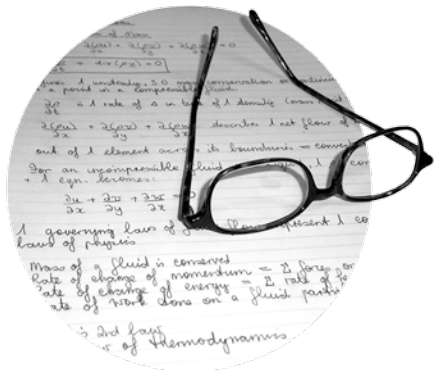 of Mass
∂(ρu) + ∂(ρv) + ∂(ρw) = 0
∂x ∂y ∂z
+ div(ρu) = 0
unsteady, 3D mass conservation or
a point in a compressible fluid.
∂ρ is 1 rate of Δ in 1 density (mass
∂t
∂(ρu) + ∂(ρv) + ∂(ρw) describes 1 net flow of
∂x ∂y ∂z
out of 1 element across its boundaries =
For an incompressible fluid 1
+ 1 eqn. becomes:
∂u + ∂v + ∂w =
∂x ∂y ∂z
1 governing laws of flow represent 1
laws of physics
Mass of a fluid is conserved
Rate of change of momentum = Σ forces on
Rate of change of energy = Σ rate of
rate of work done on a fluid
2nd law
of thermodynamics